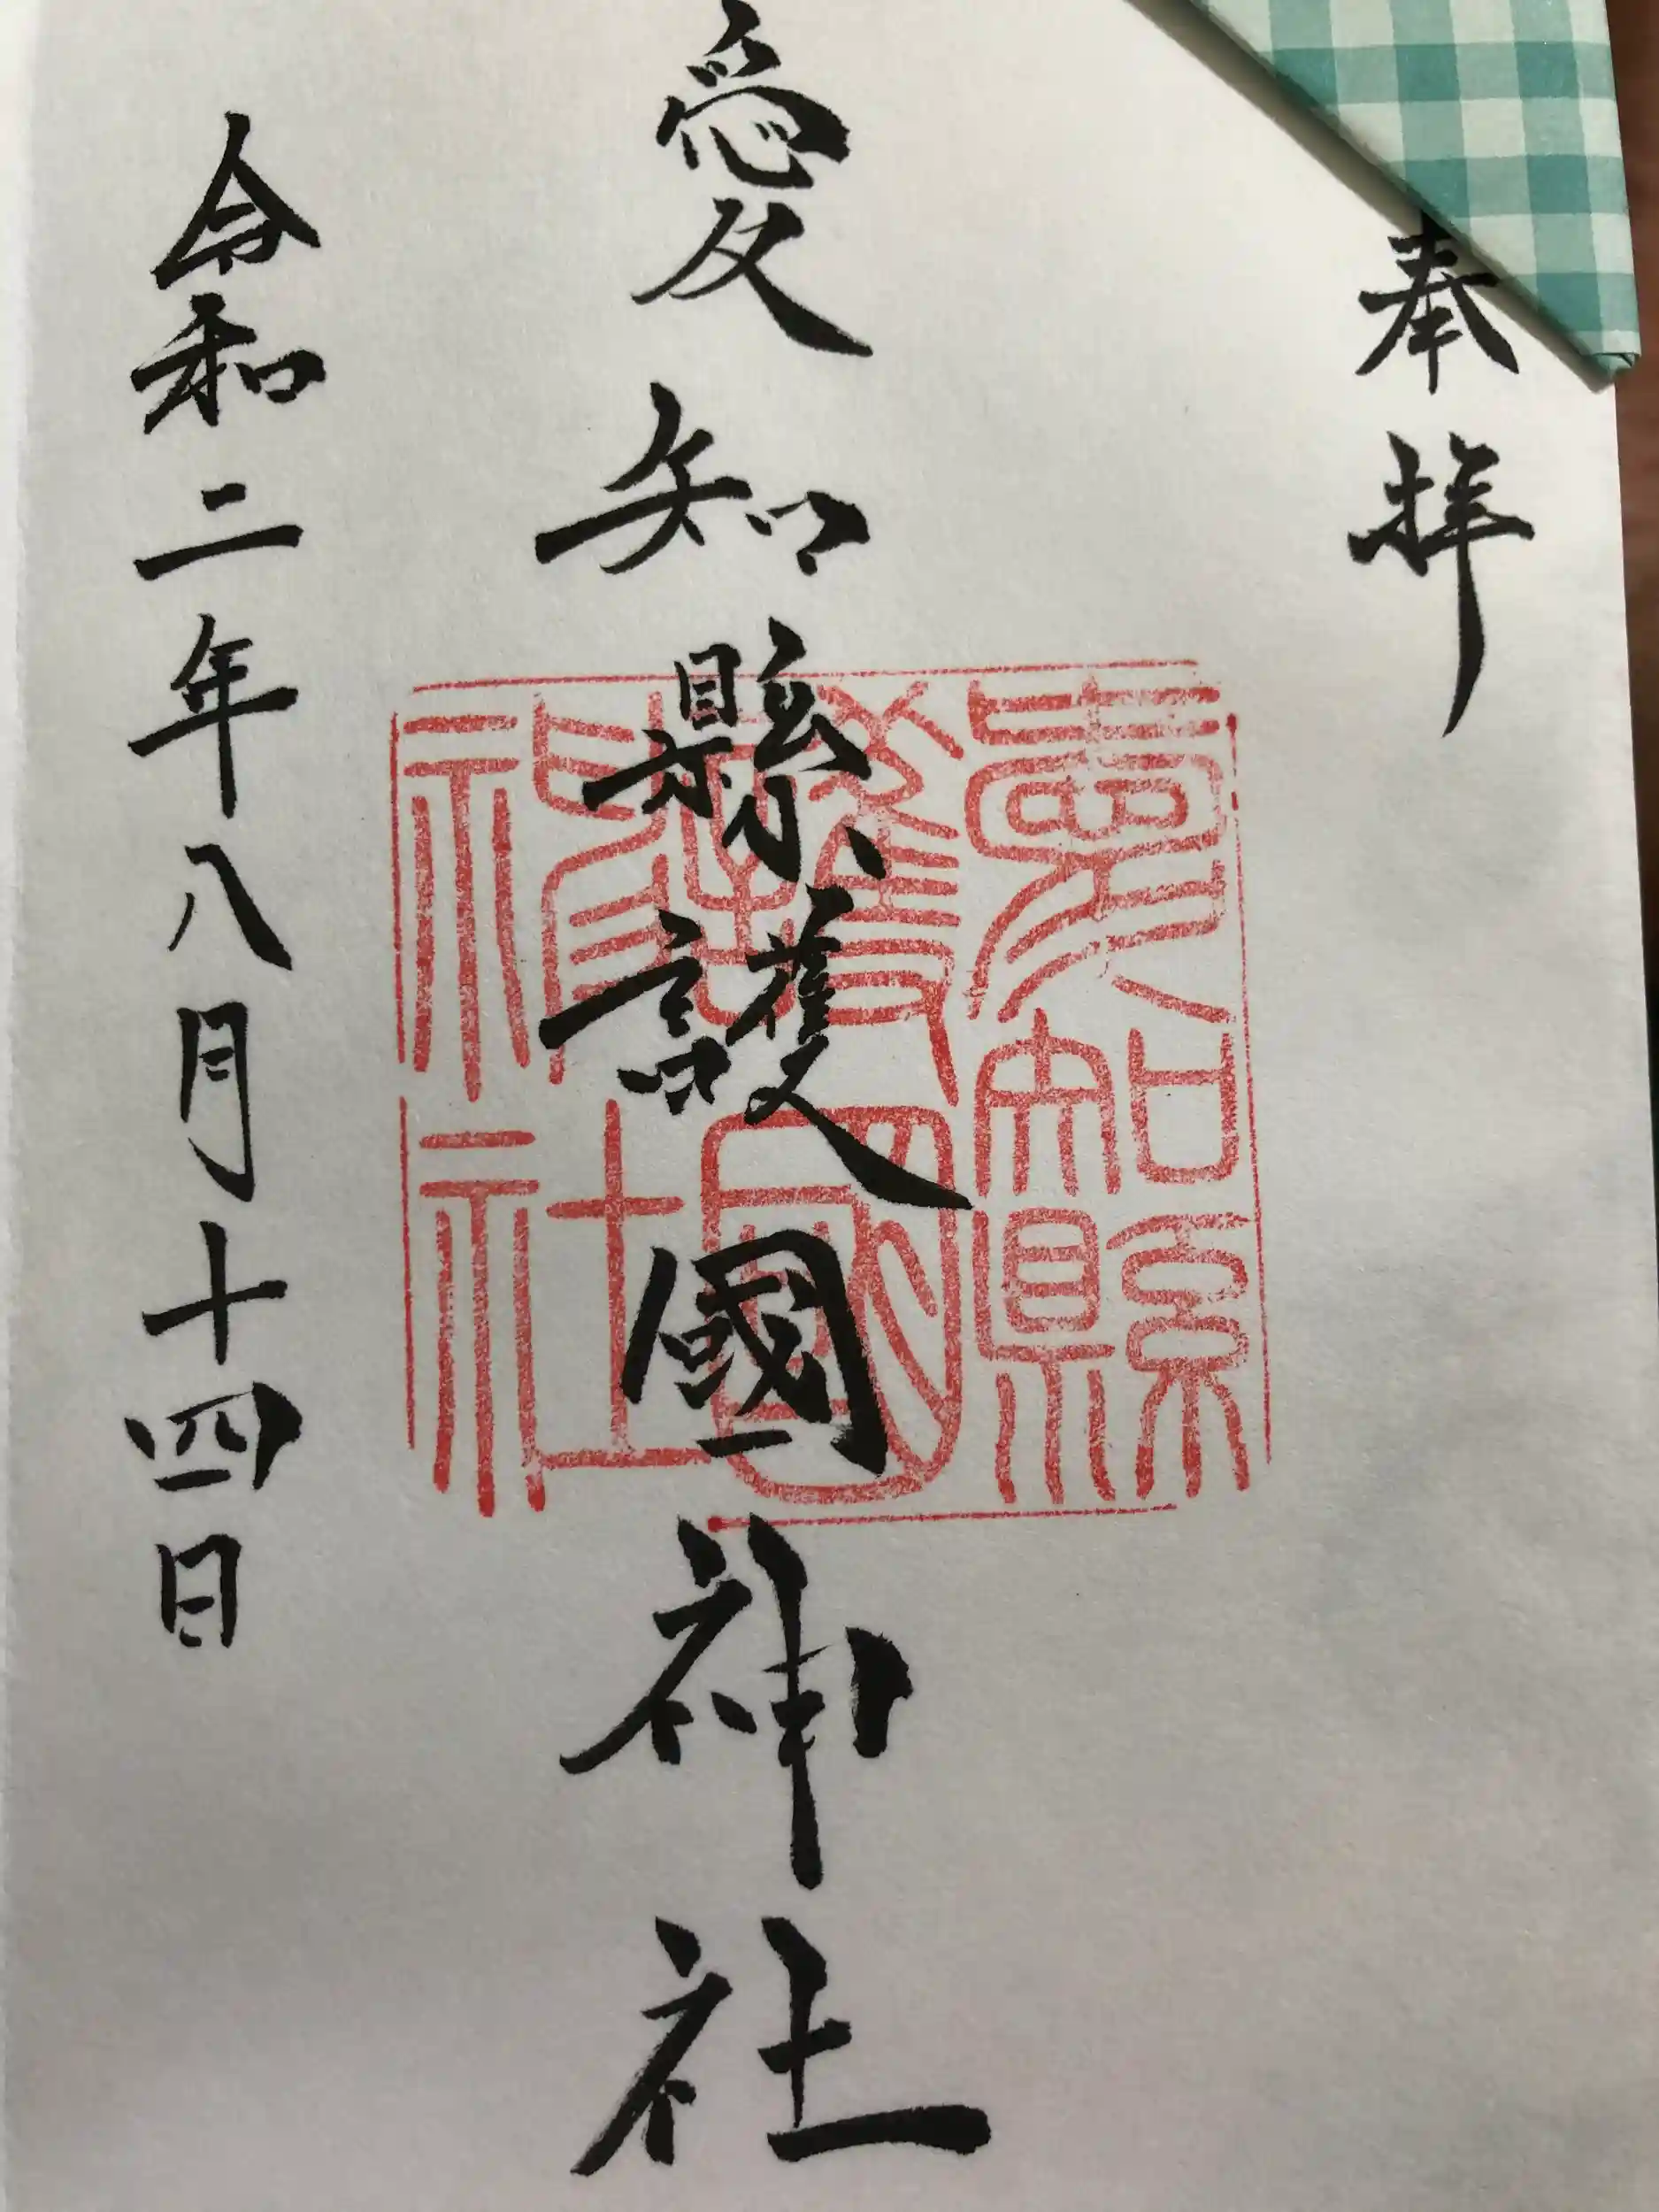 奉拝
愛知縣護國神社
愛知縣
護國
神社
令和二年八月十四日